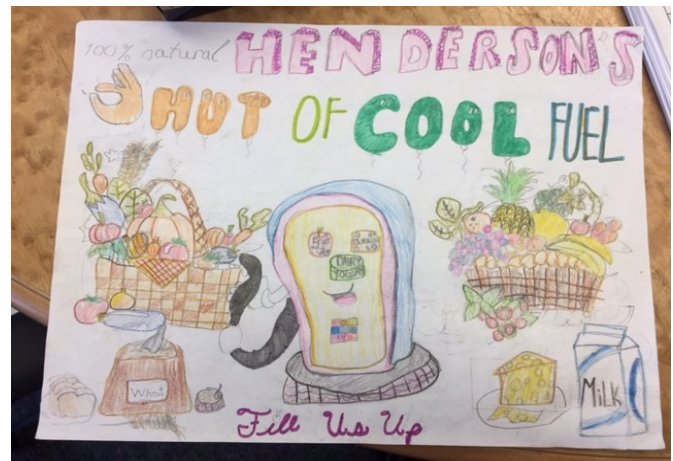 100% natural HENDERSON'S
HUT OF COOL FUEL
DAIRY
YOGURT
Wheat
MILK
Fill Us Up